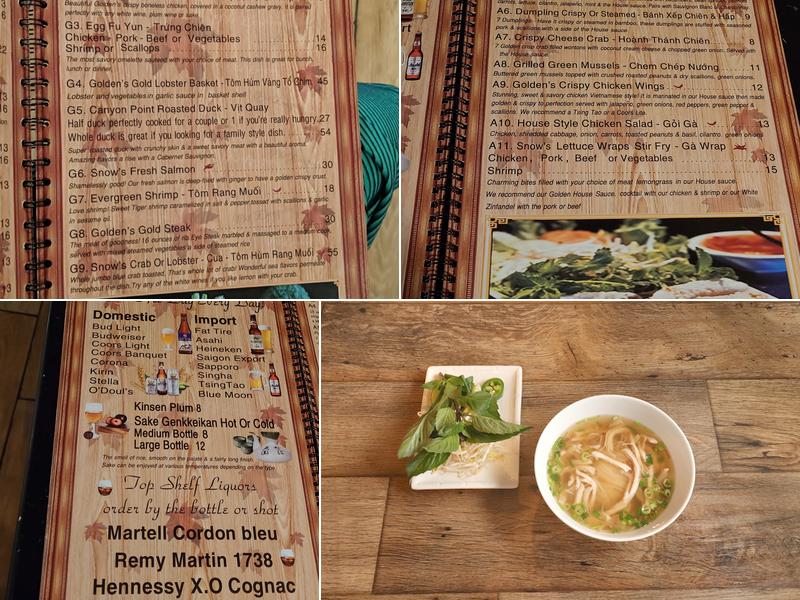 Beautiful Golden's crispy boneless chicken, covered in a coconut cashew gravy. It is
perfectly with any white wine, plum wine or sake.
G3. Egg Fu Yun - Trứng Chiên
Chicken - Pork - Beef or Vegetables 14
Shrimp or Scallops 16
The most savory omelette sauteed with your choice of meat. This dish is great for bunch,
lunch or dinner.
G4. Golden's Gold Lobster Basket - Tôm Hùm Vàng Tổ Chim 45
Lobster and vegetables in garlic sauce in basket shell
G5. Canyon Point Roasted Duck - Vịt Quay
Half duck perfectly cooked for a couple or 1 if you're really hungry. 27
Whole duck is great if you looking for a family style dish. 54
Super roasted duck with crunchy skin & a sweet savory meat with a beautiful aroma.
Amazing flavors a rise with a Cabernet Sauvignon.
G6. Snow's Fresh Salmon 30
Shamelessly good! Our fresh salmon is deep-fried with ginger to have a golden crispy crust.
G7. Evergreen Shrimp - Tôm Rang Muối 18
Love shrimp! Sweet Tiger shrimp caramelized in salt & pepper, tossed with scallions & garlic
in sesame oil.
G8. Golden's Gold Steak 30
The meat of goodness! 16 ounces of rib Eye Steak marbled & massaged to a medium cook,
served with mixed steamed vegetables & side of steamed rice
G9. Snow's Crab Or Lobster - Cua - Tôm Hùm Rang Muối 55
Whole jumbo blue crab toasted. That's whole lot of crab! Wonderful sea flavors permeate
throughout the dish. Try any of the white wines if you like lemon with your crab.
A6. Dumpling Crispy Or Steamed - Bánh Xếp Chiên & Hấp 9
7 Dumplings - Have it crispy or steamed in bamboo, these dumplings are stuffed with seasoned
pork & scallions with a side of the House sauce.
A7. Crispy Cheese Crab - Hoành Thánh Chiên 8
7 Golden crisp crab filled wontons with coconut cream cheese & chopped green onion. Served with
the House sauce.
A8. Grilled Green Mussels - Chem Chép Nướng 11
Buttered green mussels topped with crushed roasted peanuts & dry scallions, green onions.
A9. Golden's Crispy Chicken Wings 12
Stunning, sweet & savory chicken Vietnamese style! It is marinated in our House sauce then made
golden & crispy to perfection served with jalapeño, green onions, red peppers, green pepper &
scallions. We recommend a Tsing Tao or a Coors Lite.
A10. House Style Chicken Salad - Gỏi Gà 13
Chicken, shredded cabbage, onion, carrots, toasted peanuts & basil, cilantro, green onions
A11. Snow's Lettuce Wraps Stir Fry - Gà Wrap
Chicken, Pork, Beef or Vegetables 13
Shrimp 15
Charming bites filled with your choice of meat lemongrass in our House sauce.
We recommend our Golden House Sauce, cocktail with our chicken & shrimp or our White
Zinfandel with the pork or beef
Domestic
Bud Light
Budweiser
Coors Light
Coors Banquet
Corona
Kirin
Stella
O'Doul's
Import
Fat Tire
Asahi
Heineken
Saigon Export
Sapporo
Singha
TsingTao
Blue Moon
Kinsen Plum 8
Sake Genkkeikan Hot Or Cold
Medium Bottle 8
Large Bottle 12
The smell of rice, smooth on the palate & a fairly long finish.
Sake can be enjoyed at various temperatures depending on the type
Top Shelf Liquors
order by the bottle or shot
Martell Cordon bleu
Remy Martin 1738
Hennessy X.O Cognac